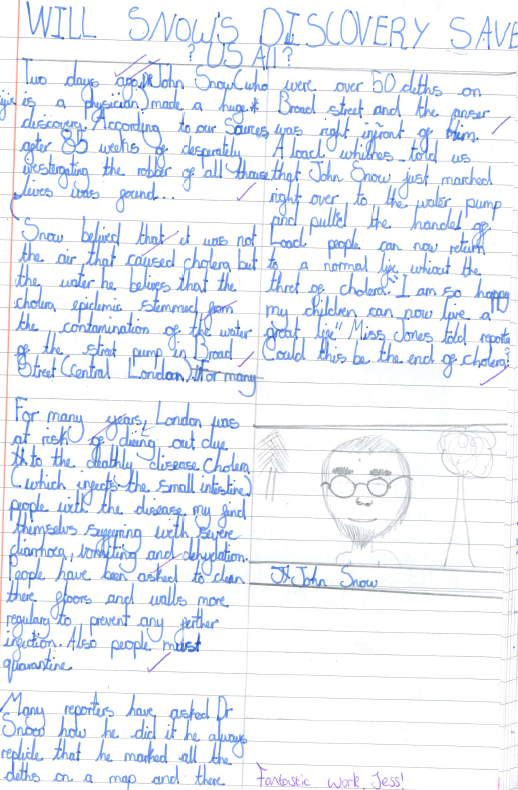 WILL SNOW'S DISCOVERY SAVE
? US All?
Two days ago, Dr John Snow (who
is a physician) made a huge
discovery. According to our Sources
after 85 weeks of desparately
investergating the robber of all those
lives was found...
Snow belived that it was not
the air that caused cholera but
the water he belives that the
cholera epidemic stemmed from
the contamination of the water
of the street pump in Broad
Street (Central London). For many
For many years, London was
at risk of dieing out due
to the deathly disease Cholera
(which infects the small intestine)
people with the disease my find
themselvs suffering with severe
diarrhoea, vomiting and dehydation.
People have been asked to clean
there floors and walls more
regulary to prevent any ferther
infection. Also people must
quarantine.
Many reporters have asked Dr
Snow how he did it he always
replide that he marked all the
deths on a map and there
were over 50 deths on
Broad street and the anser
was right infront of him.
A loacl whitnes told us
that John Snow just marched
right over to the water pump
and pulled the handel of
Loacl people can now return
to a normal life whiout the
thret of cholera. "I am so happy
my children can now live a
great life" Miss Jones told reports
Could this be the end of cholera?
John Snow
Fantastic work, Jess!